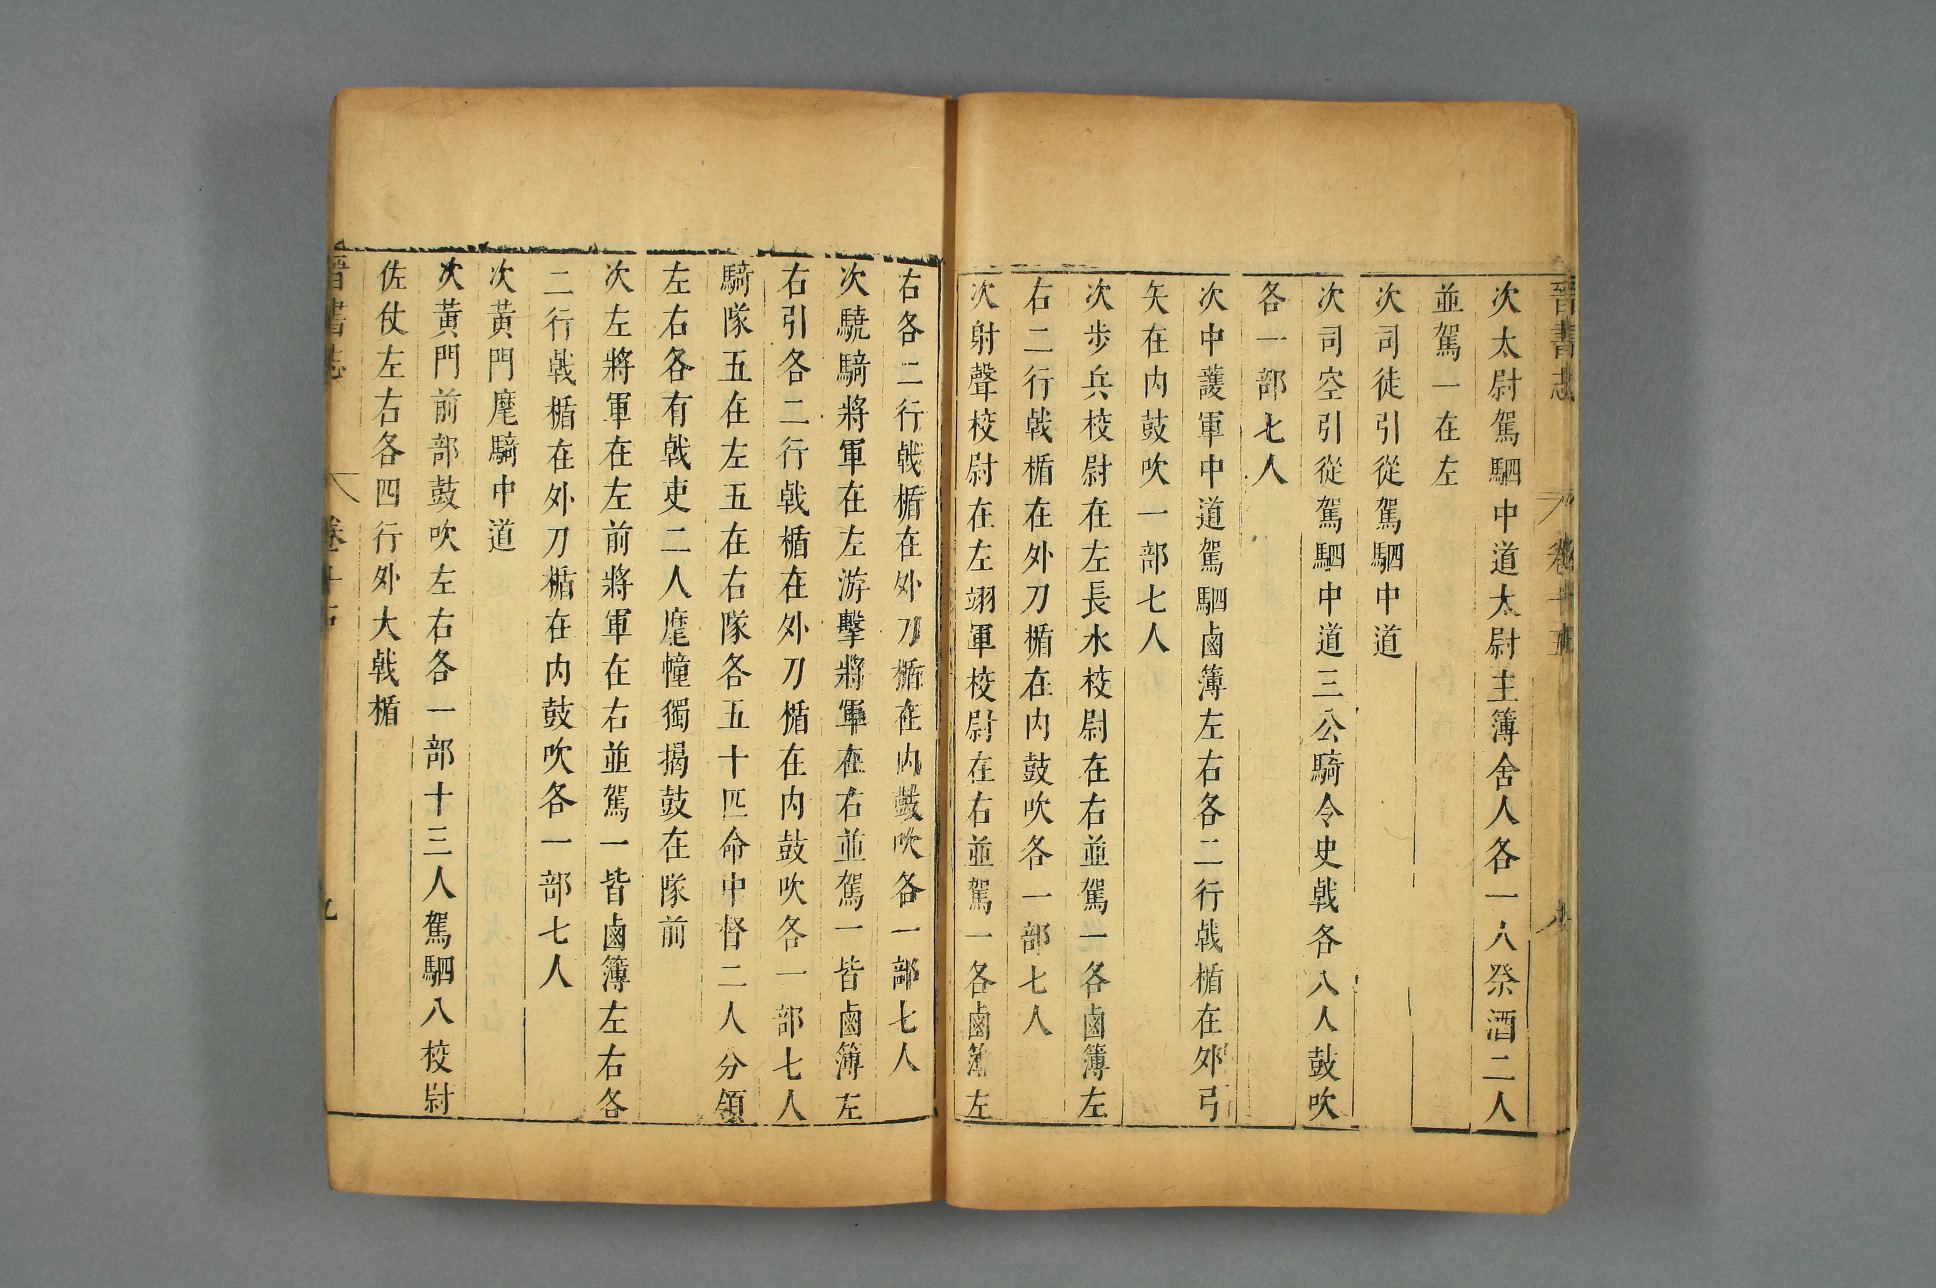 晉書志
卷十五
次太尉駕駟中道太尉主簿舍人各一人祭酒二人
並駕一在左
次司徒引從駕駟中道
次司空引從駕駟中道三公騎令史戟各八人鼓吹
各一部七人
次中護軍中道駕駟鹵簿左右各二行戟楯在外弓
矢在內鼓吹一部七人
次步兵校尉在左長水校尉在右並駕一各鹵簿左
右二行戟楯在外刀楯在內鼓吹各一部七人
次射聲校尉在左翊軍校尉在右並駕一各鹵簿左
右各二行戟楯在外刀楯在內鼓吹各一部七人
次驍騎將軍在左游擊將軍在右並駕一皆鹵簿左
右引各二行戟楯在外刀楯在內鼓吹各一部七人
騎隊五在左五在右隊各五十匹命中督二人分領
左右各有戟吏二人麾幢獨揭鼓在隊前
次左將軍在左前將軍在右並駕一皆鹵簿左右各
二行戟楯在外刀楯在內鼓吹各一部七人
次黃門麾騎中道
次黃門前部鼓吹左右各一部十三人駕駟八校尉
佐仗左右各四行外大戟楯
晉書志
卷十五
九